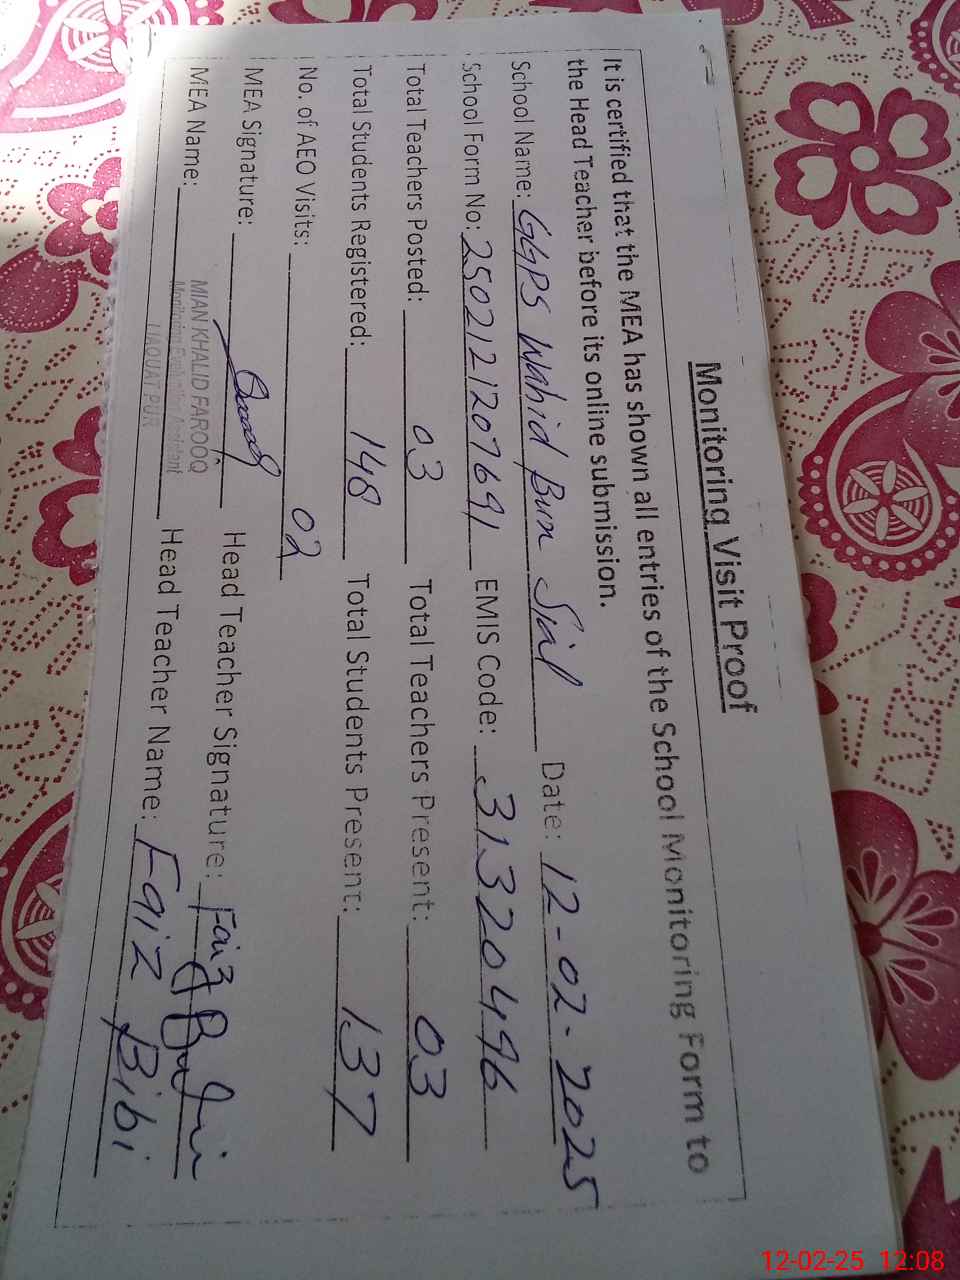 Monitoring Visit Proof
It is certified that the MEA has shown all entries of the School Monitoring Form to
the Head Teacher before its online submission.
School Name: GGPS Wahid Bux Sial Date: 12-02-2025
School Form No: 2502121207691 EMIS Code: 31320496
Total Teachers Posted: 03 Total Teachers Present: 03
Total Students Registered: 148 Total Students Present: 137
No. of AEO Visits: 02
MEA Signature: Head Teacher Signature: Faiz Bibi
MEA Name: MIAN KHALID FAROOQ Head Teacher Name: Faiz Bibi
Monitoring Evaluation Assistant
LIAQUATPUR
12-02-25 12:08